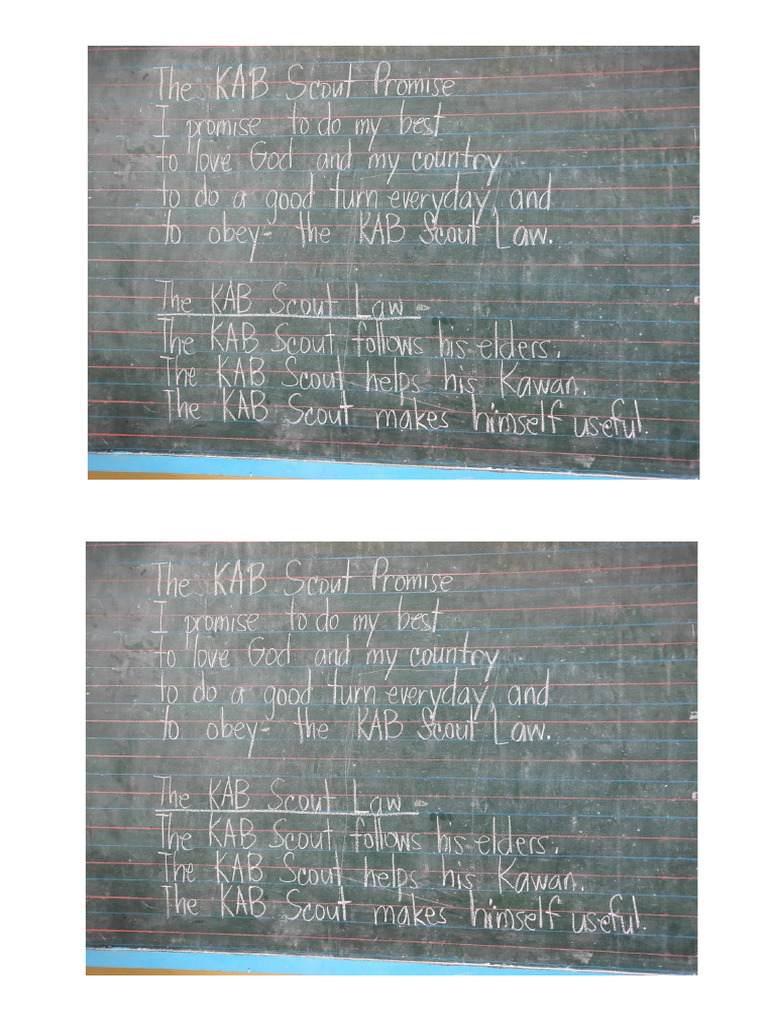 The KAB Scout Promise
I promise to do my best
to love God and my country
to do a good turn everyday, and
to obey- the KAB Scout Law.
The KAB Scout Law -
The KAB Scout follows his elders.
The KAB Scout helps his Kawan.
The KAB Scout makes himself useful.
The KAB Scout Promise
I promise to do my best
to love God and my country
to do a good turn everyday, and
to obey- the KAB Scout Law.
The KAB Scout Law -
The KAB Scout follows his elders.
The KAB Scout helps his Kawan.
The KAB Scout makes himself useful.